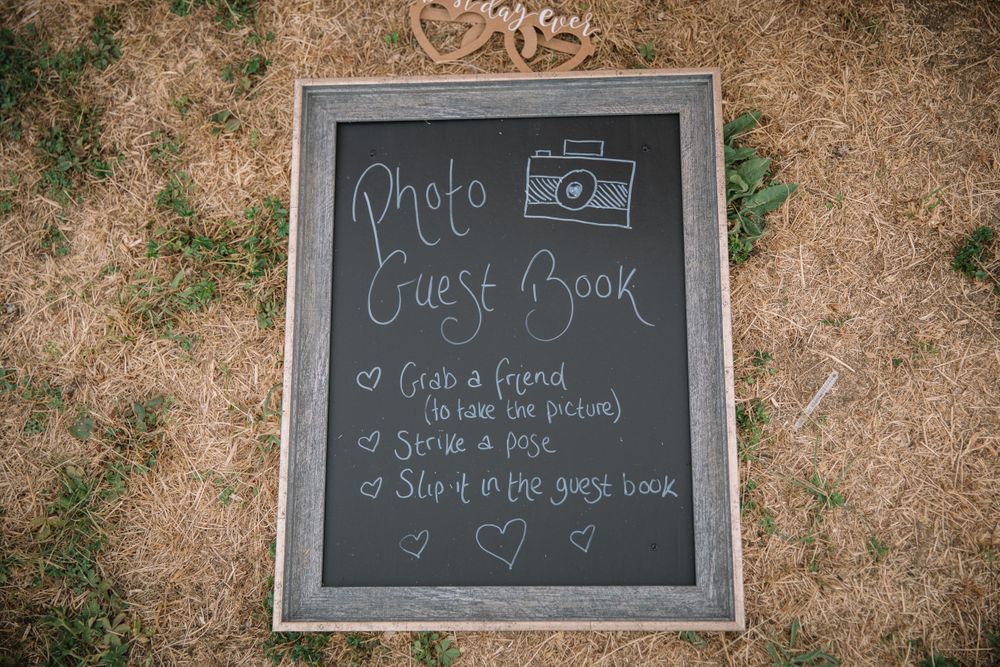 day ever
Photo
Guest Book
Grab a friend
(to take the picture)
Strike a pose
Slip it in the guest book